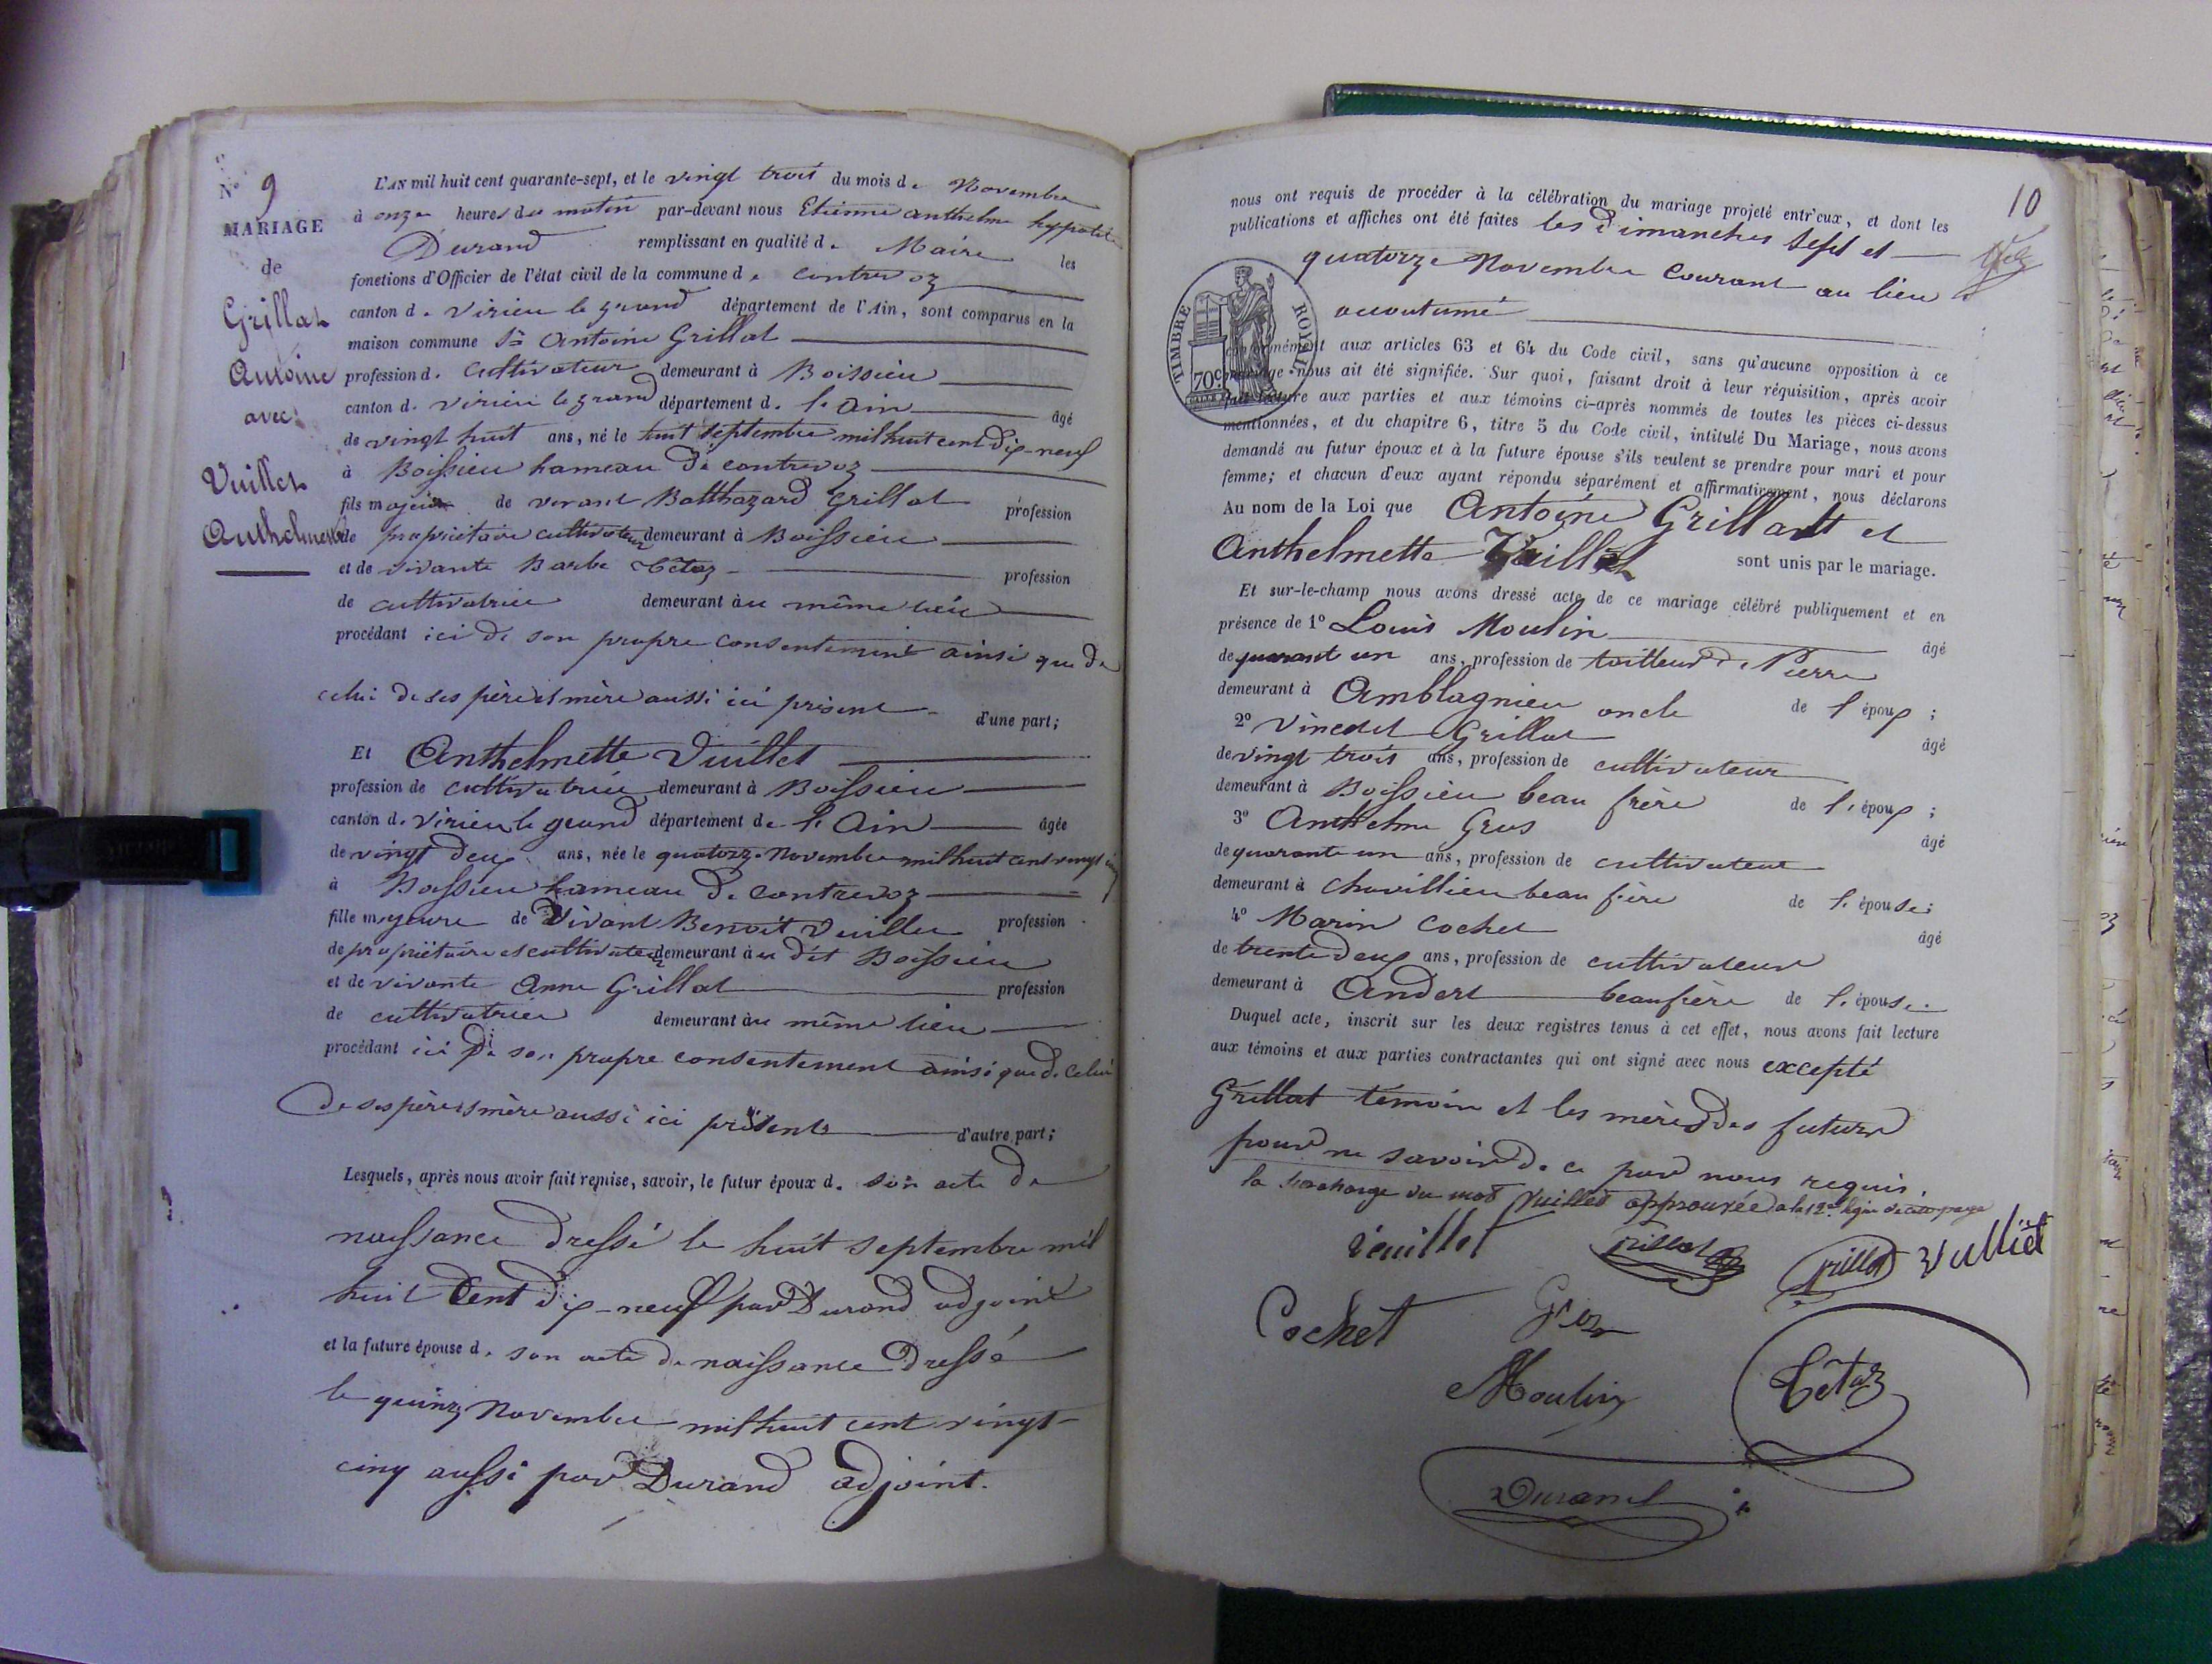 N° 9
MARIAGE
de
Grillat
Antoine
avec
Vuillet
Anthelmette
L'AN mil huit cent quarante-sept, et le vingt trois du mois de Novembre
à onze heures du matin par-devant nous Etienne anthelme hyppolite
Durand remplissant en qualité de Maire les
fonctions d'Officier de l'état civil de la commune de contrevoz
canton de virieu le grand département de l'Ain, sont comparus en la
maison commune Sr Antoine Grillat
profession de cultivateur demeurant à Boissieu
canton de virieu le grand département de l'Ain âgé
de vingt huit ans, né le huit septembre mil huit cent dix-neuf
à Boissieu hameau de contrevoz
fils majeur de vivant Balthazard Grillat profession
de propriétaire cultivateur demeurant à Boissieu
et de vivante Barbe Tétaz profession
de cultivatrice demeurant au même lieu
procédant ici de son propre consentement ainsi que de
celui de ses père et mère aussi ici présent d'une part;
Et Anthelmette Vuillet
profession de cultivatrice demeurant à Boissieu
canton de Virieu le grand département de l'Ain âgée
de vingt deux ans, née le quatorze Novembre mil huit cent vingt cinq
à Boissieu hameau de contrevoz
fille majeure de Vivant Benoît Vuillet profession
de propriétaire et cultivateur demeurant au dit Boissieu
et de vivante Anne Grillat profession
de cultivatrice demeurant au même lieu
procédant ici de son propre consentement ainsi que de celui
de ses père et mère aussi ici présents d'autre part;
Lesquels, après nous avoir fait remise, savoir, le futur époux de son acte de
naissance dressé le huit septembre mil
huit Cent dix-neuf par Durand adjoint
et la future épouse de son acte de naissance dressé
le quinze Novembre mil huit cent vingt-
cinq aussi par Durand adjoint.
10
nous ont requis de procéder à la célébration du mariage projeté entr'eux, et dont les
publications et affiches ont été faites les Dimanches sept et
quatorze Novembre Courant au lieu
accoutumé
TIMBRE ROYAL
70c
conformément aux articles 63 et 64 du Code civil, sans qu'aucune opposition à ce
mariage nous ait été signifiée. Sur quoi, faisant droit à leur réquisition, après avoir
fait lecture aux parties et aux témoins ci-après nommés de toutes les pièces ci-dessus
mentionnées, et du chapitre 6, titre 5 du Code civil, intitulé Du Mariage, nous avons
demandé au futur époux et à la future épouse s'ils veulent se prendre pour mari et pour
femme; et chacun d'eux ayant répondu séparément et affirmativement, nous déclarons
Au nom de la Loi que Antoine Grillat et
Anthelmette Vuillet sont unis par le mariage.
Et sur-le-champ nous avons dressé acte de ce mariage célébré publiquement et en
présence de 1° Louis Moulin âgé
de quarant un ans, profession de tailleur de Pierre
demeurant à Amblagnieu oncle de l'époux;
2° Vincent Grillat âgé
de vingt trois ans, profession de cultivateur
demeurant à Boissieu beau frère de l'époux;
3° Anthelme Gros âgé
de quarante un ans, profession de cultivateur
demeurant à Chavillieu beau frère de l'épouse;
4° Marin Cochet âgé
de trente deux ans, profession de cultivateur
demeurant à Andert beaufrère de l'épouse.
Duquel acte, inscrit sur les deux registres tenus à cet effet, nous avons fait lecture
aux témoins et aux parties contractantes qui ont signé avec nous excepté
Grillat témoin et les mères des futurs
pour ne savoir de ce par nous requis.
la surcharge du mot Vuillet approuvée à la 12e ligne de cette page
Vuillet Grillat Grillat Vulliet
Cochet Gros
Moulin Tétaz
Durand